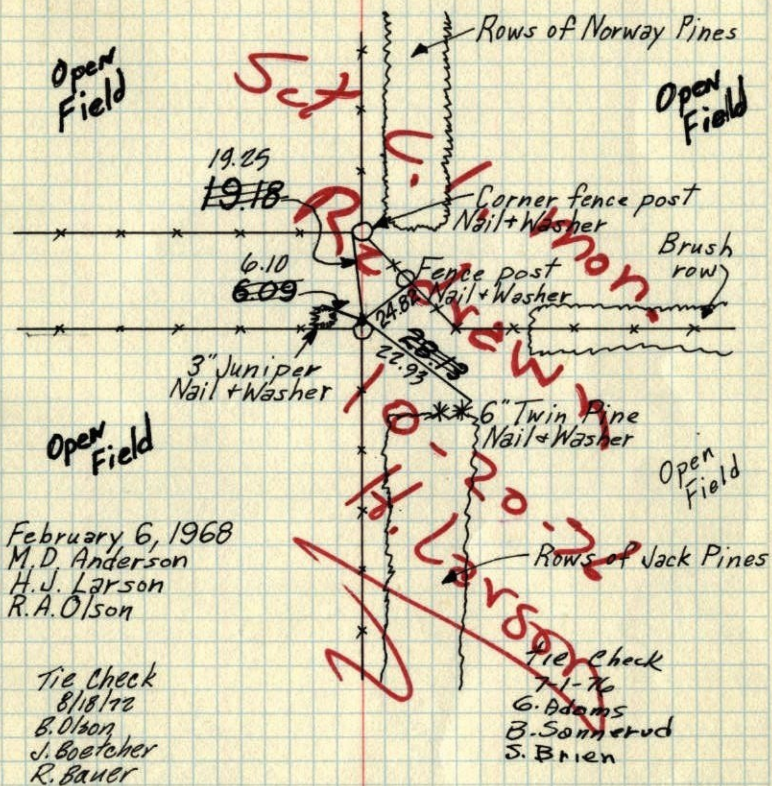 Rows of Norway Pines
Open
Field
Open
Field
Set C.I. mon.
19.25
19.18
Corner fence post
Nail + Washer
Redrewn
Brush
row
6.10
6.09
Fence post
Nail + Washer
24.82
28.13
22.93
3" Juniper
Nail + Washer
6" Twin Pine
Nail & Washer
10-20-
H. Larson
Open
Field
Open
Field
February 6, 1968
M.D. Anderson
H.J. Larson
R.A. Olson
Rows of Jack Pines
Tie Check
8/18/72
B. Olson
J. Boetcher
R. Bauer
Tie Check
7-1-76
G. Adams
B. Sonnerud
S. Brien